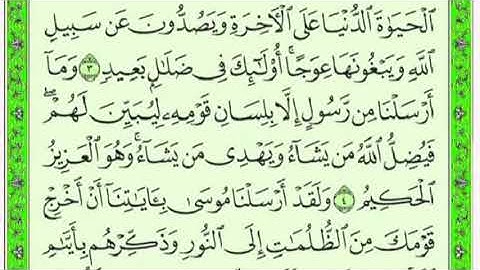 ٱلْحَيَوٰةَ ٱلدُّنْيَا عَلَى ٱلْأَخِرَةِ وَيَصُدُّونَ عَن سَبِيلِ
ٱللَّهِ وَيَبْغُونَهَا عِوَجًا ۚ أُو۟لَـٰٓئِكَ فِى ضَلَـٰلٍۭ بَعِيدٍ ٣ وَمَآ
أَرْسَلْنَا مِن رَّسُولٍ إِلَّا بِلِسَانِ قَوْمِهِۦ لِيُبَيِّنَ لَهُمْ ۖ
فَيُضِلُّ ٱللَّهُ مَن يَشَآءُ وَيَهْدِى مَن يَشَآءُ ۚ وَهُوَ ٱلْعَزِيزُ
ٱلْحَكِيمُ ٤ وَلَقَدْ أَرْسَلْنَا مُوسَىٰ بِـَٔايَـٰتِنَآ أَنْ أَخْرِجْ
قَوْمَكَ مِنَ ٱلظُّلُمَـٰتِ إِلَى ٱلنُّورِ وَذَكِّرْهُم بِأَيَّىٰمِ